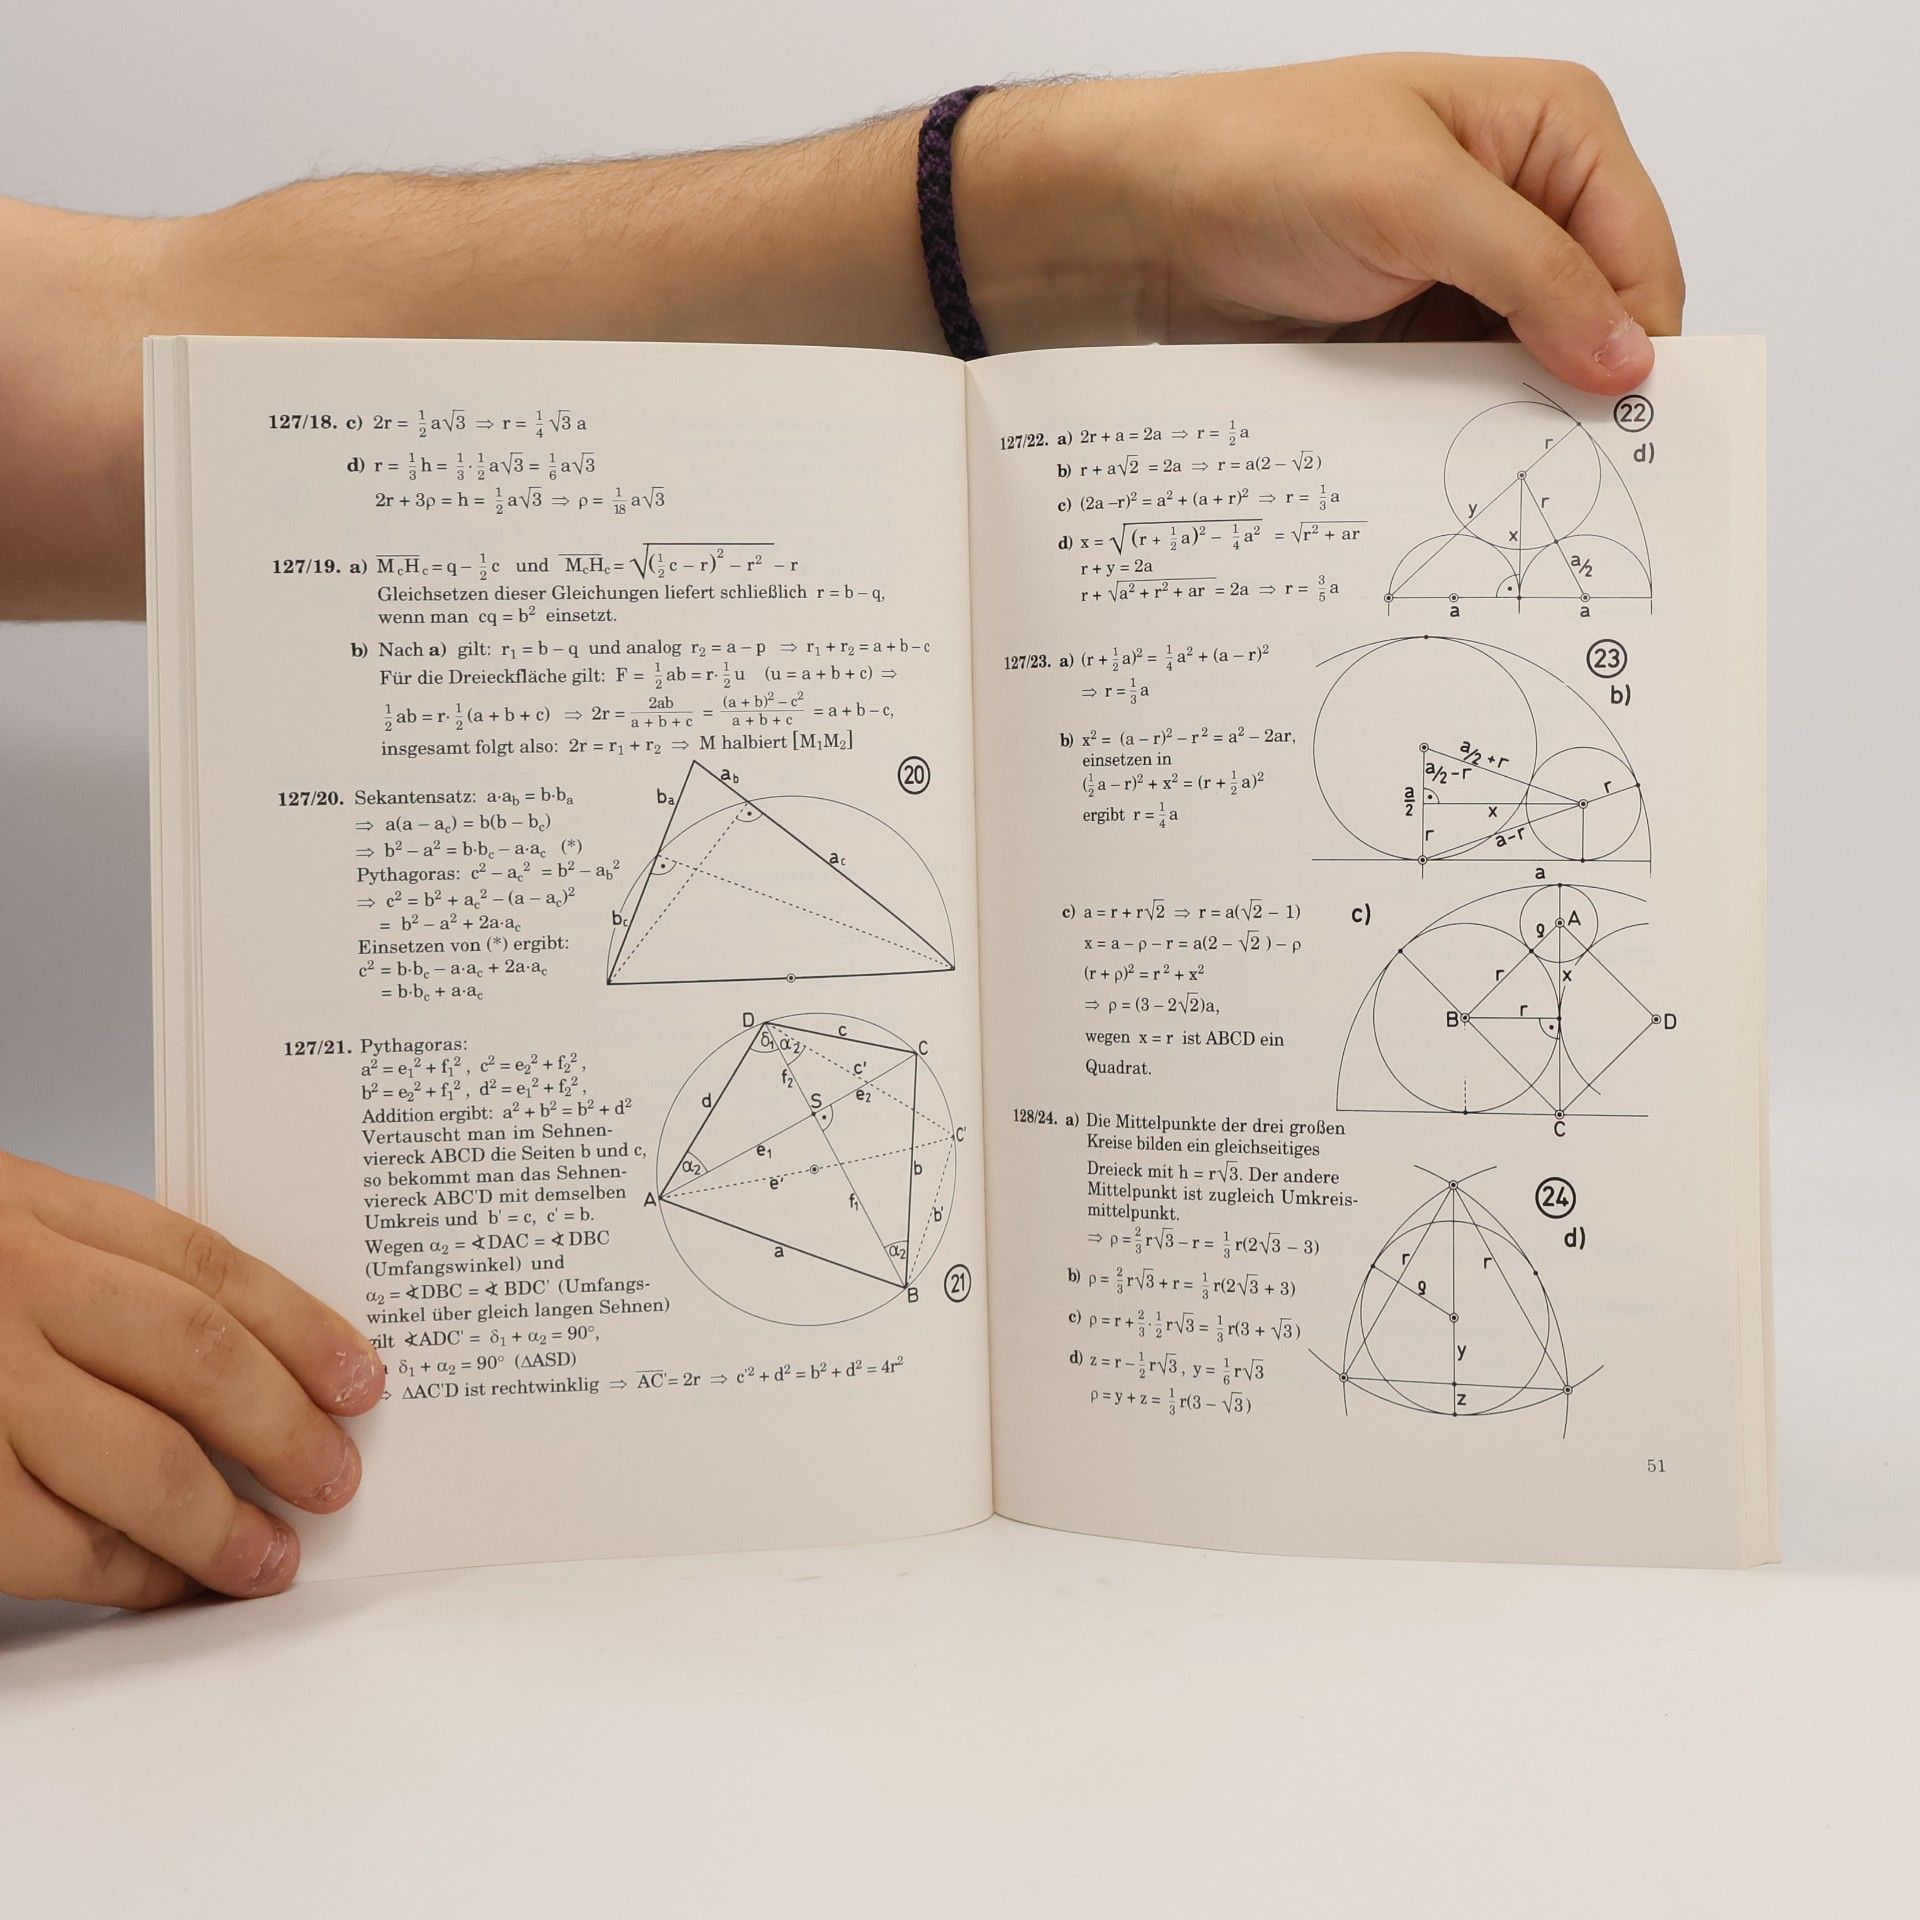 127/18. c) 2r = 1/2 a√3 ⇒ r = 1/4 √3 a
d) r = 1/3 h = 1/3 · 1/2 a√3 = 1/6 a√3
2r + 3ρ = h = 1/2 a√3 ⇒ ρ = 1/18 a√3
127/19. a) M̅c̅H̅c = q − 1/2 c und M̅c̅H̅c = √((1/2 c − r)² − r²) − r
Gleichsetzen dieser Gleichungen liefert schließlich r = b − q,
wenn man cq = b² einsetzt.
b) Nach a) gilt: r₁ = b − q und analog r₂ = a − p ⇒ r₁ + r₂ = a + b − c
Für die Dreieckfläche gilt: F = 1/2 ab = r · 1/2 u (u = a + b + c) ⇒
1/2 ab = r · 1/2 (a + b + c) ⇒ 2r = 2ab/(a + b + c) = ((a + b)² − c²)/(a + b + c) = a + b − c,
insgesamt folgt also: 2r = r₁ + r₂ ⇒ M halbiert [M₁M₂]
127/20. Sekantensatz: a·a_b = b·b_a
⇒ a(a − a_c) = b(b − b_c)
⇒ b² − a² = b·b_c − a·a_c (*)
Pythagoras: c² − a_c² = b² − a_b²
⇒ c² = b² + a_c² − (a − a_c)²
= b² − a² + 2a·a_c
Einsetzen von (*) ergibt:
c² = b·b_c − a·a_c + 2a·a_c
= b·b_c + a·a_c
20
a_b
b_a
a_c
b_c
127/21. Pythagoras:
a² = e₁² + f₁², c² = e₂² + f₂²,
b² = e₂² + f₁², d² = e₁² + f₂²,
Addition ergibt: a² + b² = b² + d²
Vertauscht man im Sehnen-
viereck ABCD die Seiten b und c,
so bekommt man das Sehnen-
viereck ABC'D mit demselben
Umkreis und b' = c, c' = b.
Wegen α₂ = ∢DAC = ∢DBC
(Umfangswinkel) und
α₂ = ∢DBC = ∢BDC' (Umfangs-
winkel über gleich langen Sehnen)
gilt ∢ADC' = δ₁ + α₂ = 90°,
δ₁ + α₂ = 90° (ΔASD)
⇒ ΔAC'D ist rechtwinklig ⇒ A̅C̅' = 2r ⇒ c'² + d² = b² + d² = 4r²
D
c
C
δ₁
α₂
f₂
c'
d
S
e₂
C'
α₂
e₁
b
A
e'
f₁
b'
a
α₂
B
21
127/22. a) 2r + a = 2a ⇒ r = 1/2 a
b) r + a√2 = 2a ⇒ r = a(2 − √2)
c) (2a − r)² = a² + (a + r)² ⇒ r = 1/3 a
d) x = √((r + 1/2 a)² − 1/4 a²) = √(r² + ar)
r + y = 2a
r + √(a² + r² + ar) = 2a ⇒ r = 3/5 a
22
d)
r
y
r
x
a/2
a
a
127/23. a) (r + 1/2 a)² = 1/4 a² + (a − r)²
⇒ r = 1/3 a
b) x² = (a − r)² − r² = a² − 2ar,
einsetzen in
(1/2 a − r)² + x² = (r + 1/2 a)²
ergibt r = 1/4 a
23
b)
a/2+r
a/2−r
r
a/2
x
r
a−r
a
c) a = r + r√2 ⇒ r = a(√2 − 1)
x = a − ρ − r = a(2 − √2) − ρ
(r + ρ)² = r² + x²
⇒ ρ = (3 − 2√2)a,
wegen x = r ist ABCD ein
Quadrat.
c)
A
ρ
r
x
B
r
D
C
128/24. a) Die Mittelpunkte der drei großen
Kreise bilden ein gleichseitiges
Dreieck mit h = r√3. Der andere
Mittelpunkt ist zugleich Umkreis-
mittelpunkt.
⇒ ρ = 2/3 r√3 − r = 1/3 r(2√3 − 3)
b) ρ = 2/3 r√3 + r = 1/3 r(2√3 + 3)
c) ρ = r + 2/3 · 1/2 r√3 = 1/3 r(3 + √3)
d) z = r − 1/2 r√3, y = 1/6 r√3
ρ = y + z = 1/3 r(3 − √3)
24
d)
r
r
ρ
y
z
51